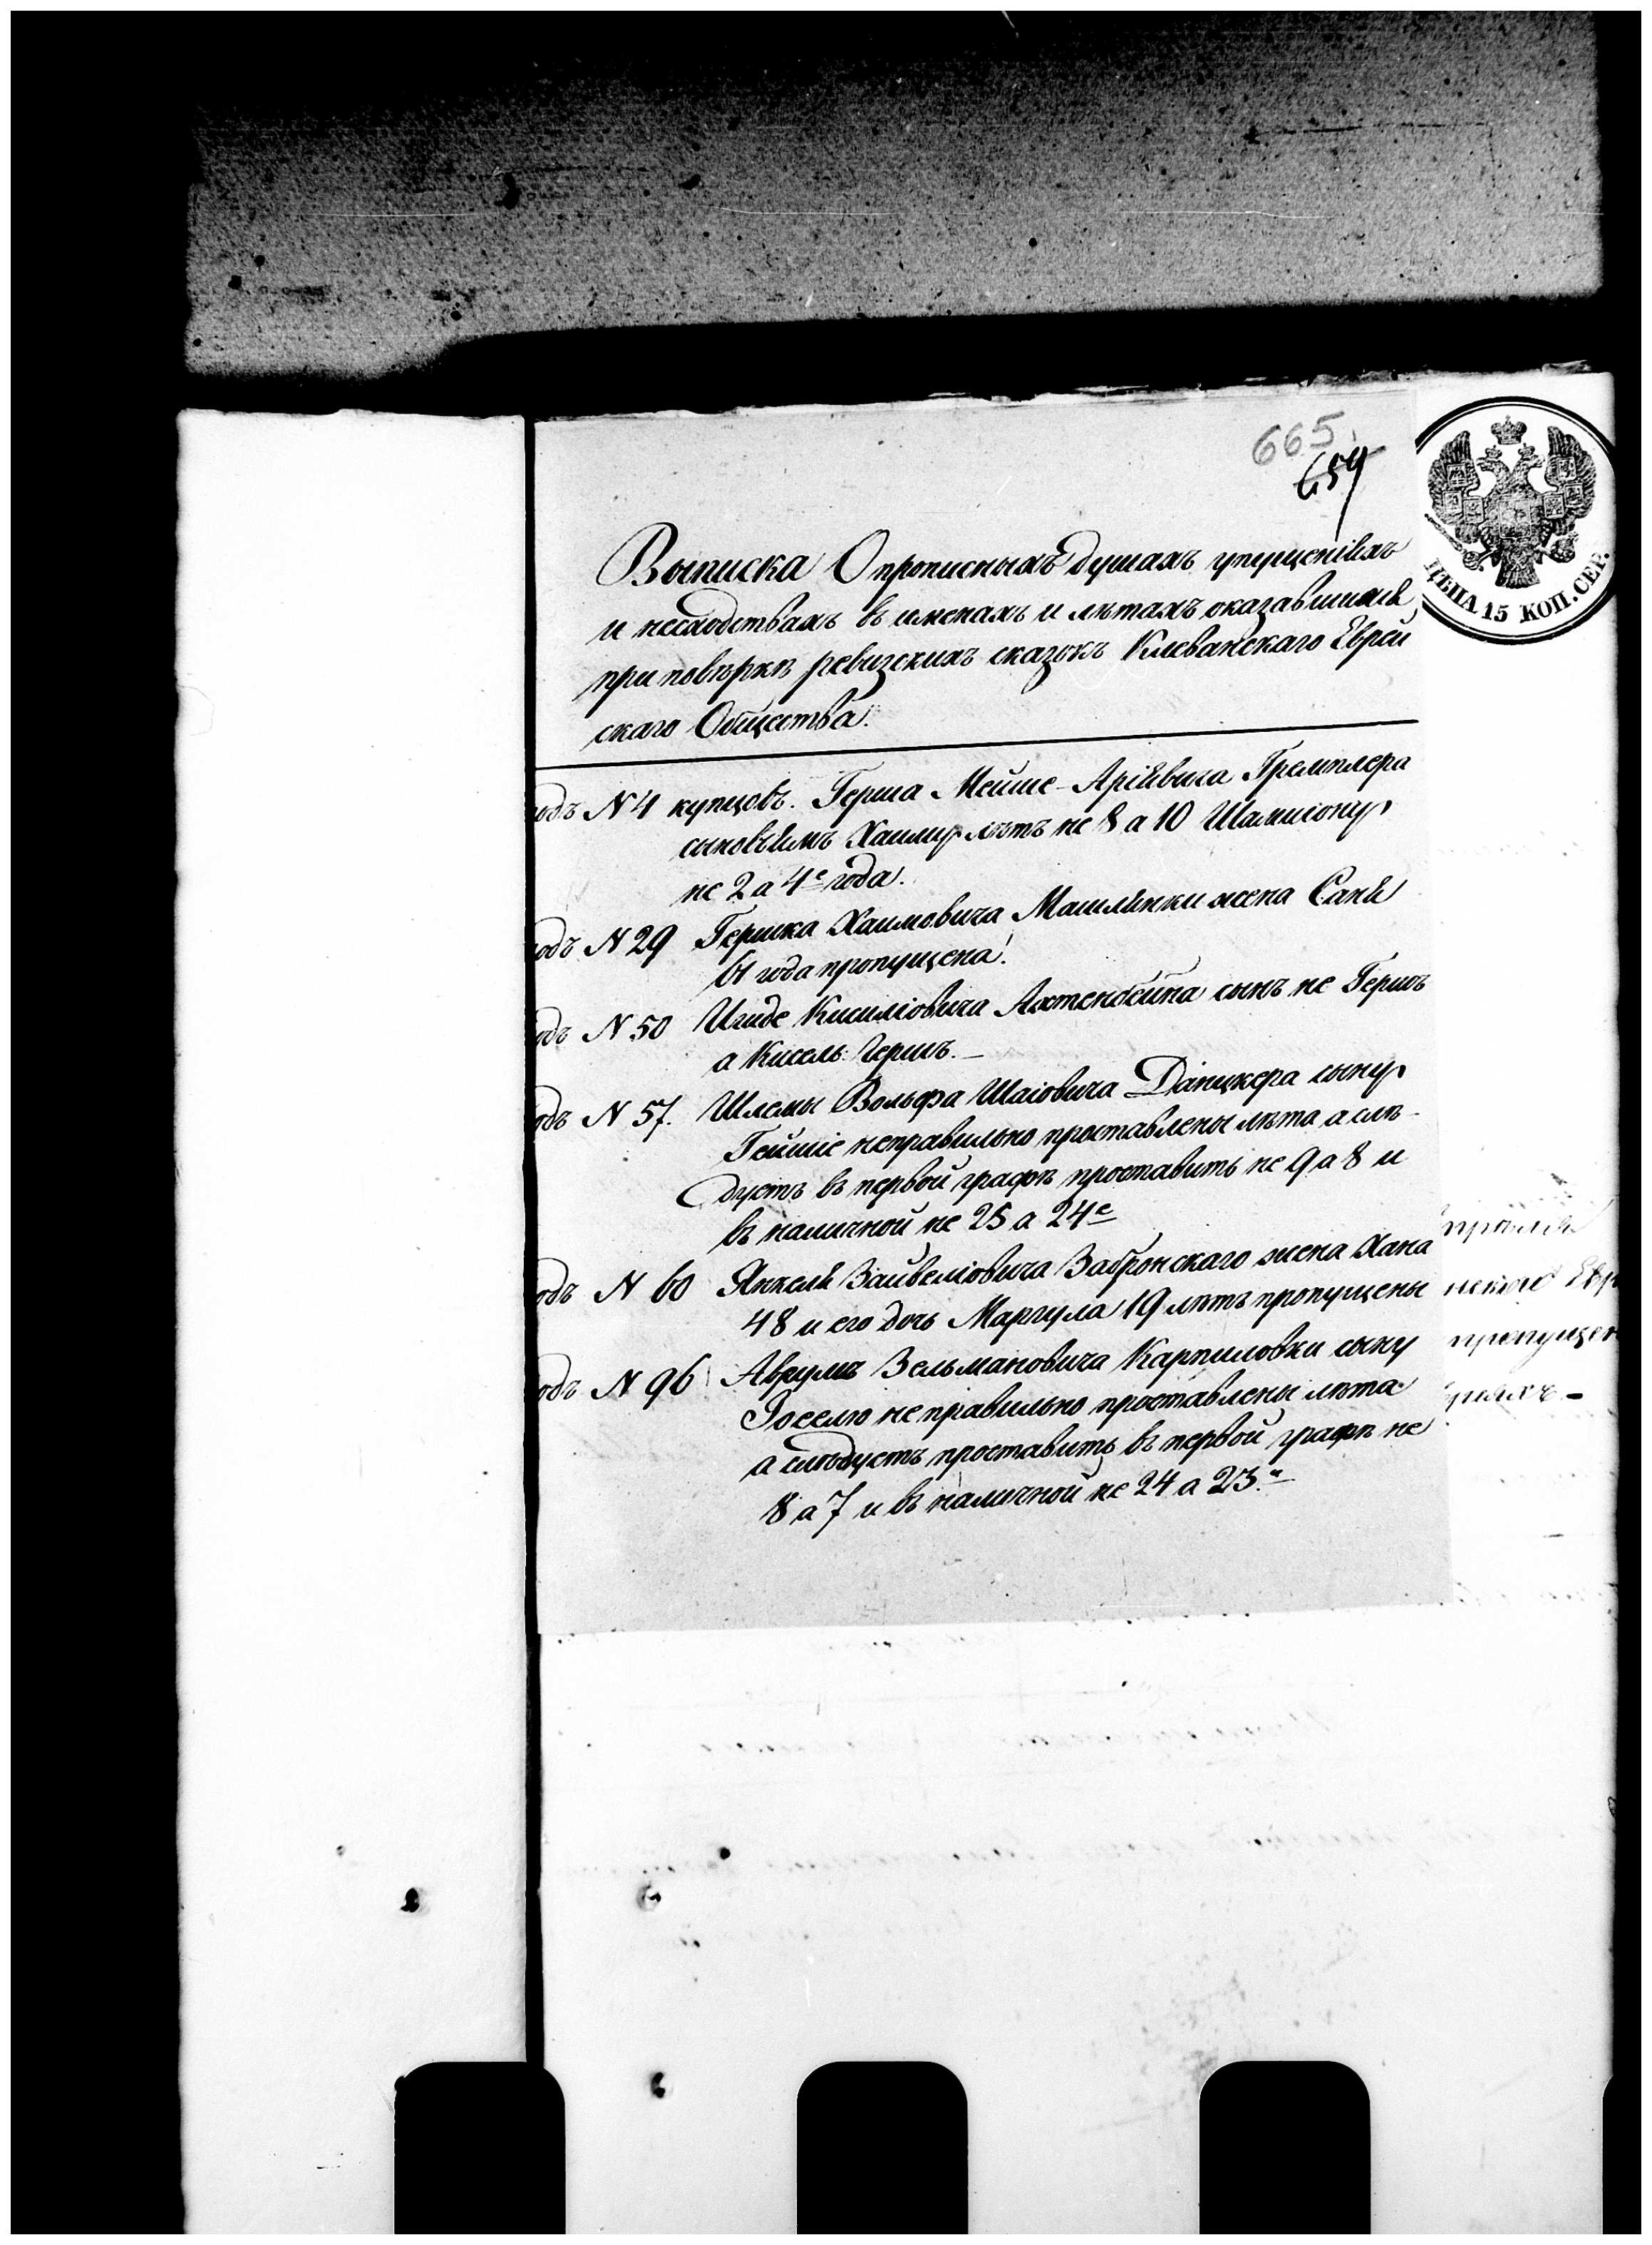 665.
659
ЦѢНА 15 КОП. СЕР.
Выписка О прописныхъ душахъ упущеніяхъ
и несходствахъ въ именахъ и лѣтахъ оказавшихся
при повѣркѣ ревизскихъ сказокъ Клеванскаго Еврей
скаго Общества.
подъ N 4 купцовъ. Герша Мейше-Аріёвича Гремплера
сыновьямъ Хаиму лѣтъ не 8 а 10 Шамшону
не 2 а 4е года.
подъ N 29 Гершка Хаимовича Машлянки жена Саня
61 года пропущена.
подъ N 50 Иуиде Кисиліовича Ахтенбейна сынъ не Гершъ
а Кисель Гершъ. —
подъ N 57. Шлемы Вольфа Шаіовича Данцкера сыну
Гейшіе неправильно проставлены лѣта а слѣ-
дуетъ въ первой графѣ проставить не 9 а 8 и
въ наличной не 25 а 24е
подъ N 60 Янкеля Зайвеліовича Забронскаго жена Хана
48 и его дочь Маргула 19 лѣтъ пропущены
подъ N 96 Аврумъ Зельмановича Карпиловки сыну
Іоселю неправильно проставлены лѣта
а слѣдуетъ проставить въ первой графѣ не
8 а 7 и въ наличной не 24 а 23.
нскаго Евр
пропущен